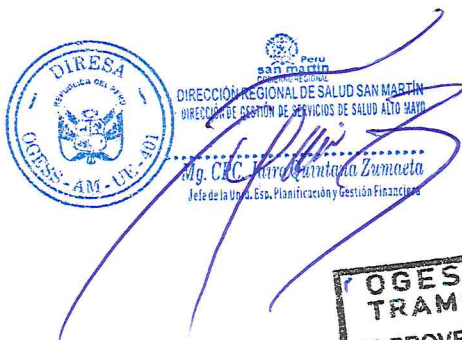 DIRESA
REPUBLICA DEL PERU
OGESS - AM - UE - 401
Peru
san martín
GOBIERNO REGIONAL
DIRECCIÓN REGIONAL DE SALUD SAN MARTÍN
DIRECCIÓN DE GESTIÓN DE SERVICIOS DE SALUD ALTO MAYO
Mg. CPC. Quintana Zumaeta
Jefe de la Unid. Esp. Planificación y Gestión Financiera
OGES
TRAM
PROVE